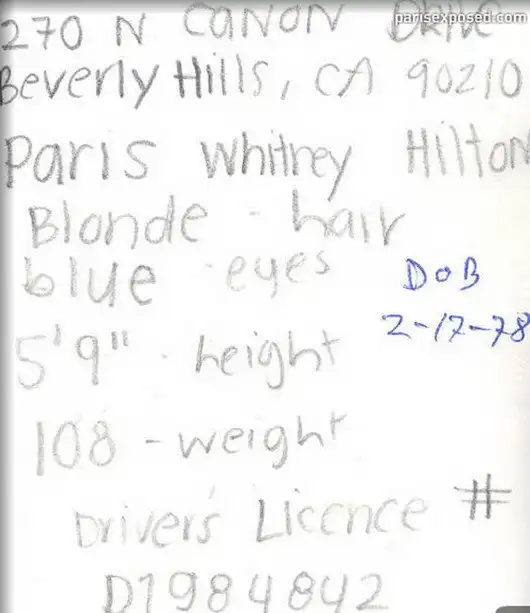 parisexposed.com
270 N CANON DRIVE
Beverly Hills, CA 90210
PARIS Whitney Hilton
Blonde - hair
blue - eyes
DOB
2-17-78
5'9" - height
108 - weight
Driver's Licence #
D1984842